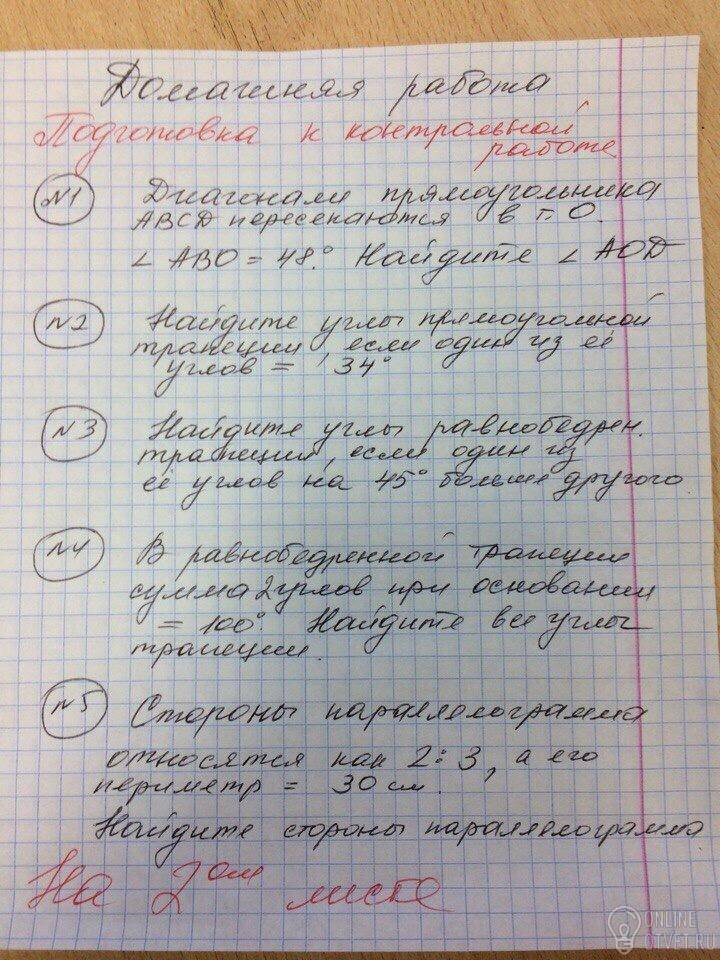 Домашняя работа
Подготовка к контрольной
работе
№1 Диагонали прямоугольника
ABCD пересекаются в т. О.
∠ ABO = 48°. Найдите ∠ AOD
№2 Найдите углы прямоугольной
трапеции, если один из её
углов = 34°
№3 Найдите углы равнобедрен.
трапеции, если один из
её углов на 45° больше другого
№4 В равнобедренной трапеции
сумма 2 углов при основании
= 100°. Найдите все углы
трапеции.
№5 Стороны параллелограмма
относятся как 2:3, а его
периметр = 30 см.
Найдите стороны параллелограмма
На 2ом листе
ONLINE
OTVET.RU